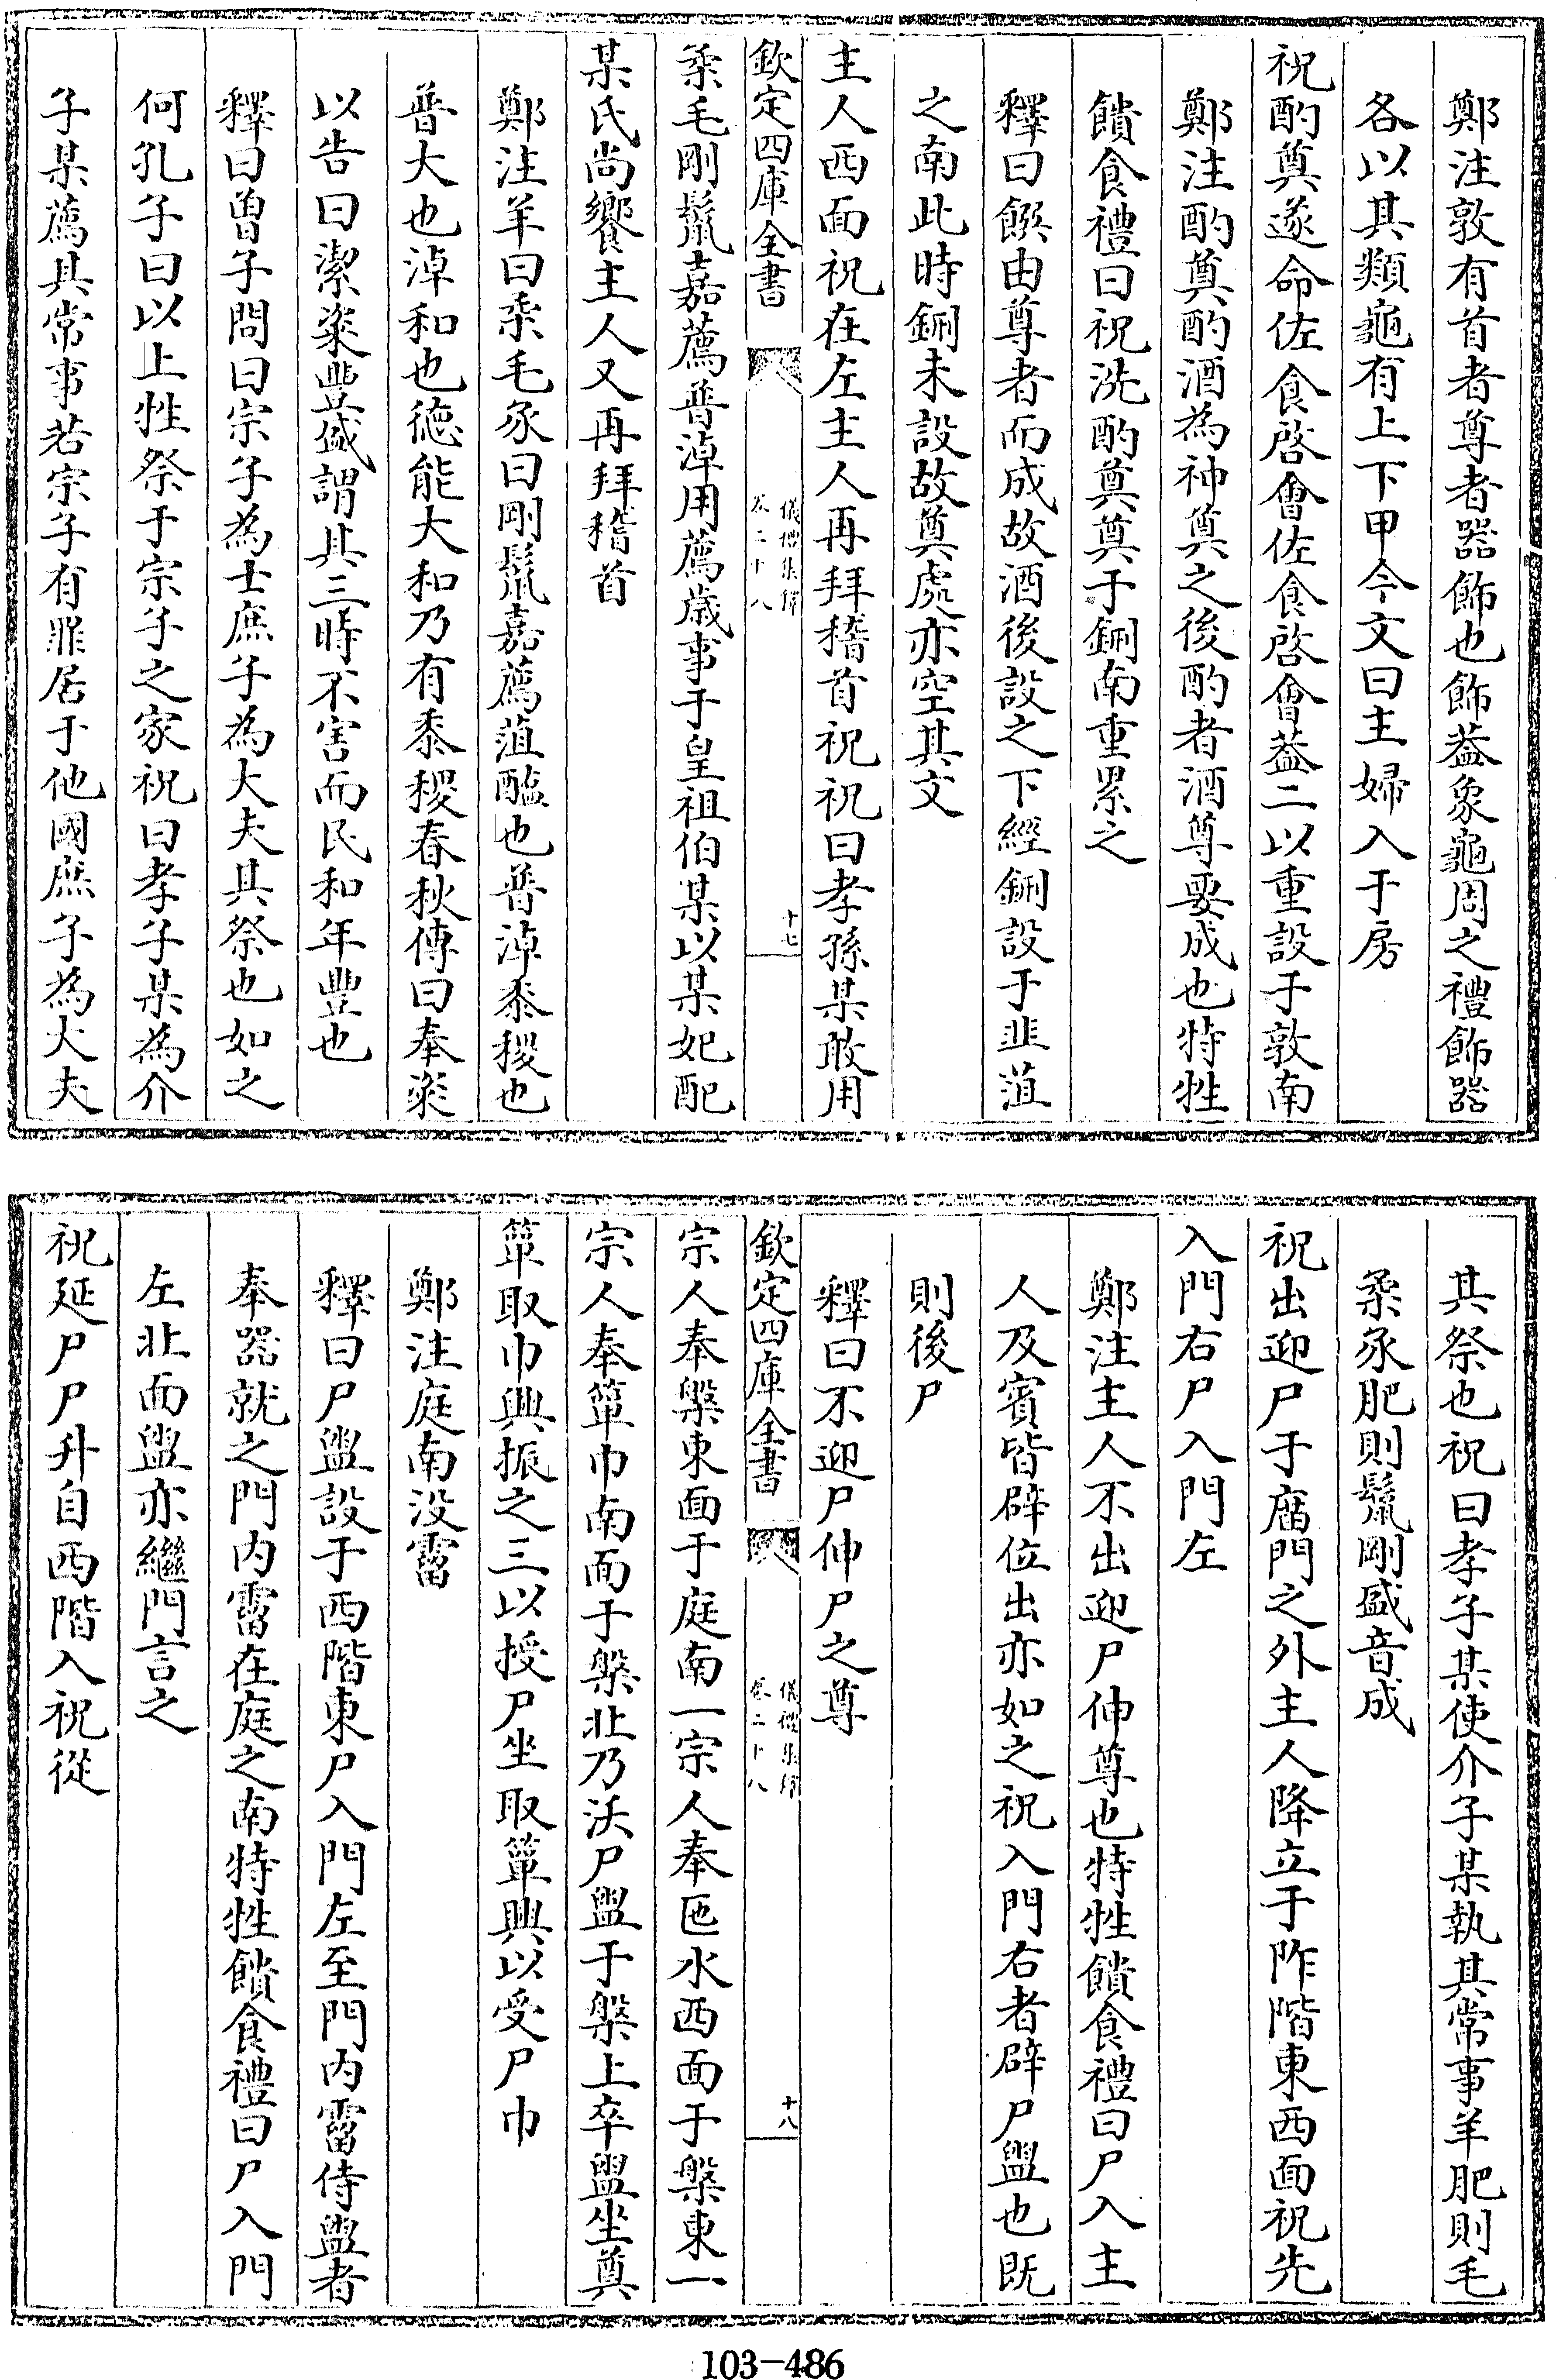 鄭注敦有首者尊者器飾也飾蓋象龜周之禮飾器
各以其類龜有上下甲今文曰主婦入于房
祝酌奠遂命佐食啓會佐食啓會蓋二以重設于敦南
鄭注酌奠酌酒為神奠之後酌者酒尊要成也特牲
饋食禮曰祝洗酌奠奠于鉶南重累之
釋曰饌由尊者而成故酒後設之下經鉶設于韭菹
之南此時鉶未設故奠處亦空其文
主人西面祝在左主人再拜稽首祝祝曰孝孫某敢用
欽定四庫全書
儀禮集釋
卷二十八
十七
柔毛剛鬛嘉薦普淖用薦歲事于皇祖伯某以某妃配
某氏尚饗主人又再拜稽首
鄭注羊曰柔毛豕曰剛鬛嘉薦菹醢也普淖黍稷也
普大也淖和也德能大和乃有黍稷春秋傳曰奉粢
以告曰潔粢豐盛謂其三時不害而民和年豐也
釋曰曾子問曰宗子為士庶子為大夫其祭也如之
何孔子曰以上牲祭于宗子之家祝曰孝子某為介
子某薦其常事若宗子有罪居于他國庶子為大夫
其祭也祝曰孝子某使介子某執其常事羊肥則毛
柔豕肥則鬛剛盛音成
祝出迎尸于廟門之外主人降立于阼階東西面祝先
入門右尸入門左
鄭注主人不出迎尸伸尊也特牲饋食禮曰尸入主
人及賓皆辟位出亦如之祝入門右者辟尸盥也既
則後尸
釋曰不迎尸伸尸之尊
欽定四庫全書
儀禮集釋
卷二十八
十八
宗人奉槃東面于庭南一宗人奉匜水西面于槃東一
宗人奉簞巾南面于槃北乃沃尸盥于槃上卒盥坐奠
簞取巾興振之三以授尸坐取簞興以受尸巾
鄭注庭南没霤
釋曰尸盥設于西階東尸入門左至門内霤侍盥者
奉器就之門内霤在庭之南特牲饋食禮曰尸入門
左北面盥亦繼門言之
祝延尸尸升自西階入祝從
103-486